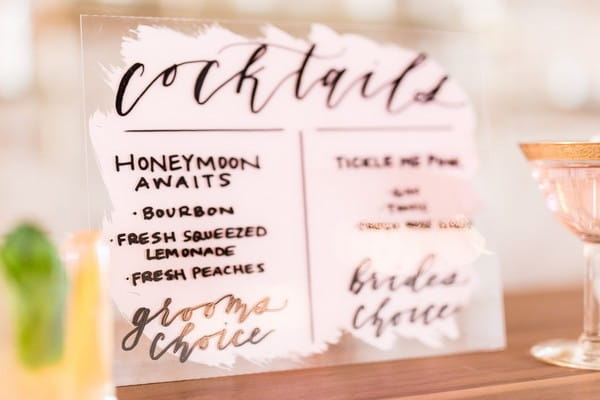 cocktails
HONEYMOON
AWAITS
· BOURBON
· FRESH SQUEEZED
LEMONADE
· FRESH PEACHES
grooms
choice
TICKLE ME PINK
· GIN
· TONIC
brides
choice